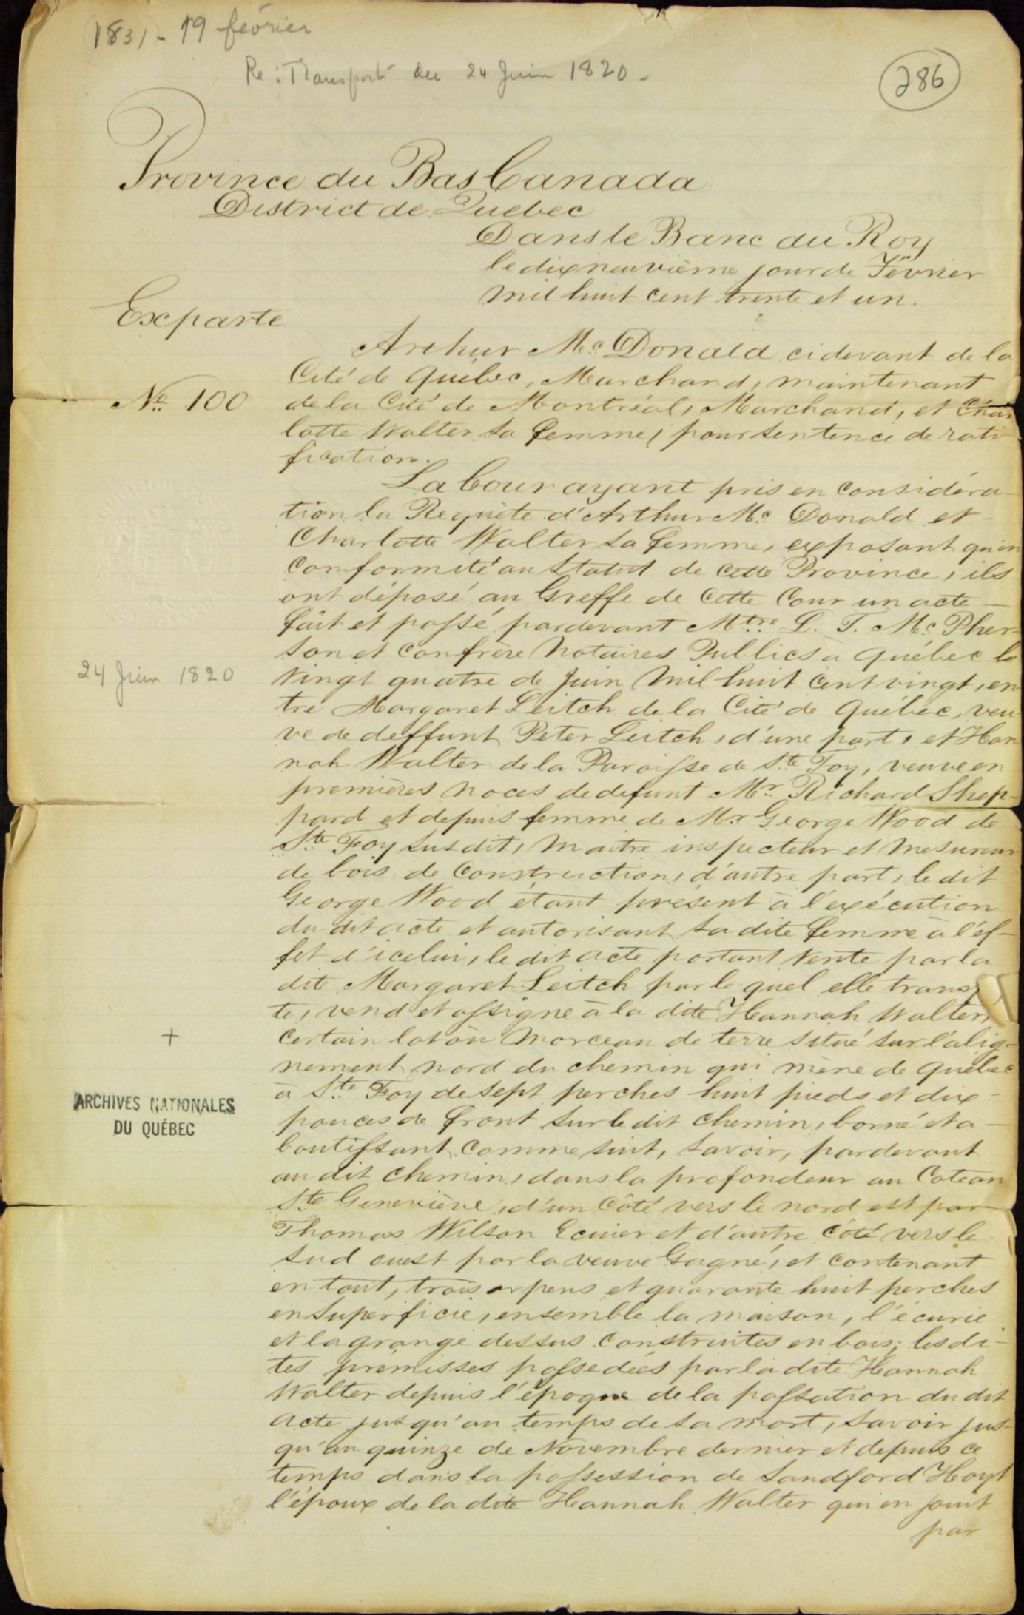 1831 - 19 février
Re: Transport du 24 Juin 1820 -
286
Province du Bas Canada
District de Quebec
Dans le Banc du Roy
le dix neuvième jour de Février
mil huit cent trente et un.
Exparte
Arthur Mc Donald ci devant de la
Cité de Québec, Marchand, maintenant
No 100
de la Cité de Montréal, Marchand, et Char
lotte Walter sa femme, pour sentence de rati
fication.
La Cour ayant pris en considéra-
tion la Requête d'Arthur Mc Donald et
Charlotte Walter sa femme, exposant qu'en
conformité au Statut de cette Province, ils
ont déposé au Greffe de cette Cour un acte
fait et passé pardevant Mtre L. T. Mc Pher-
son et confrère Notaires Publics à Québec le
24 Juin 1820
vingt quatre de Juin mil huit cent vingt, en
tre Margaret Leitch de la Cité de Québec, veu-
ve de deffunt Peter Leitch, d'une part, et Han
nah Walter de la Paroisse de Ste Foy, veuve en
premières noces de defunt Mr Richard Shep-
pard et depuis femme de Mr George Wood de
Ste Foy susdit, maitre inspecteur et mesureur
de bois de construction, d'autre part, le dit
George Wood étant présent à l'exécution
du dit acte et autorisant sa dite femme à l'ef-
fet d'icelui, le dit acte portant vente par la
dite Margaret Leitch par le quel elle transp
te, vend et assigne à la dite Hannah Walter,
certain lot ou morceau de terre situé sur l'alig-
+
nement nord du chemin qui mène de Québec
à Ste Foy de sept perches huit pieds et dix
ARCHIVES NATIONALES
DU QUÉBEC
pouces de front sur le dit chemin, borné et a-
boutissant comme suit, savoir, pardevant
au dit chemin, dans la profondeur au Coteau
Ste Geneviève, d'un côté vers le nord est par
Thomas Wilson Ecuier et d'autre côté vers le
sud ouest par la veuve Gagné, et contenant
en tout, trois arpens et quarante huit perches
en superficie, ensemble la maison, l'écurie
et la grange dessus construites en bois; lesdi-
tes premisses possedées par la dite Hannah
Walter depuis l'époque de la passation du dit
acte jusqu'au temps de sa mort, savoir jus-
qu'au quinze de Novembre dernier et depuis ce
temps dans la possession de Sandford Hoyt
l'époux de la dite Hannah Walter qui en jouit
par